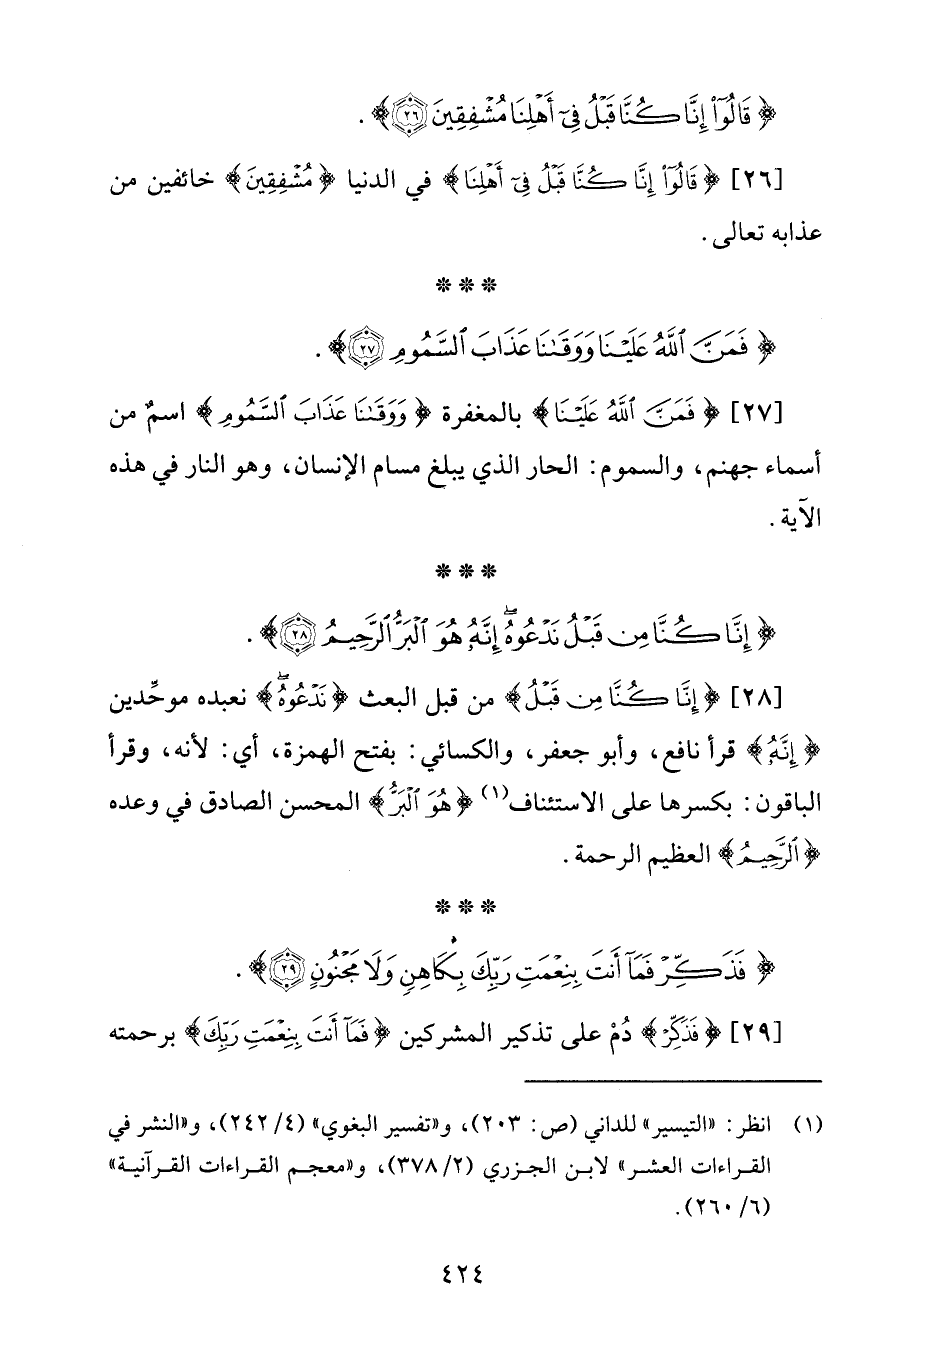 ﴿ قَالُوٓا۟ إِنَّا كُنَّا قَبْلُ فِىٓ أَهْلِنَا مُشْفِقِينَ ٢٦﴾ .
[٢٦] ﴿ قَالُوٓا۟ إِنَّا كُنَّا قَبْلُ فِىٓ أَهْلِنَا ﴾ في الدنيا ﴿ مُشْفِقِينَ ﴾ خائفين من
عذابه تعالى .
* * *
﴿ فَمَنَّ ٱللَّهُ عَلَيْنَا وَوَقَىٰنَا عَذَابَ ٱلسَّمُومِ ٢٧﴾ .
[٢٧] ﴿ فَمَنَّ ٱللَّهُ عَلَيْنَا ﴾ بالمغفرة ﴿ وَوَقَىٰنَا عَذَابَ ٱلسَّمُومِ ﴾ اسمٌ من
أسماء جهنم، والسموم: الحار الذي يبلغ مسام الإنسان، وهو النار في هذه
الآية .
* * *
﴿ إِنَّا كُنَّا مِن قَبْلُ نَدْعُوهُ ۖ إِنَّهُۥ هُوَ ٱلْبَرُّ ٱلرَّحِيمُ ٢٨﴾ .
[٢٨] ﴿ إِنَّا كُنَّا مِن قَبْلُ ﴾ من قبل البعث ﴿ نَدْعُوهُ ۖ ﴾ نعبده موحِّدين
﴿ إِنَّهُۥ ﴾ قرأ نافع، وأبو جعفر، والكسائي: بفتح الهمزة، أي: لأنه، وقرأ
الباقون: بكسرها على الاستئناف(١) ﴿ هُوَ ٱلْبَرُّ ﴾ المحسن الصادق في وعده
﴿ ٱلرَّحِيمُ ﴾ العظيم الرحمة .
* * *
﴿ فَذَكِّرْ فَمَآ أَنتَ بِنِعْمَتِ رَبِّكَ بِكَاهِنٍ وَلَا مَجْنُونٍ ٢٩﴾ .
[٢٩] ﴿ فَذَكِّرْ ﴾ دُمْ على تذكير المشركين ﴿ فَمَآ أَنتَ بِنِعْمَتِ رَبِّكَ ﴾ برحمته
(١) انظر: «التيسير» للداني (ص: ٢٠٣)، و«تفسير البغوي» (٤/ ٢٤٢)، و«النشر في
القراءات العشر» لابن الجزري (٢/ ٣٧٨)، و«معجم القراءات القرآنية»
(٦/ ٢٦٠).
٤٢٤